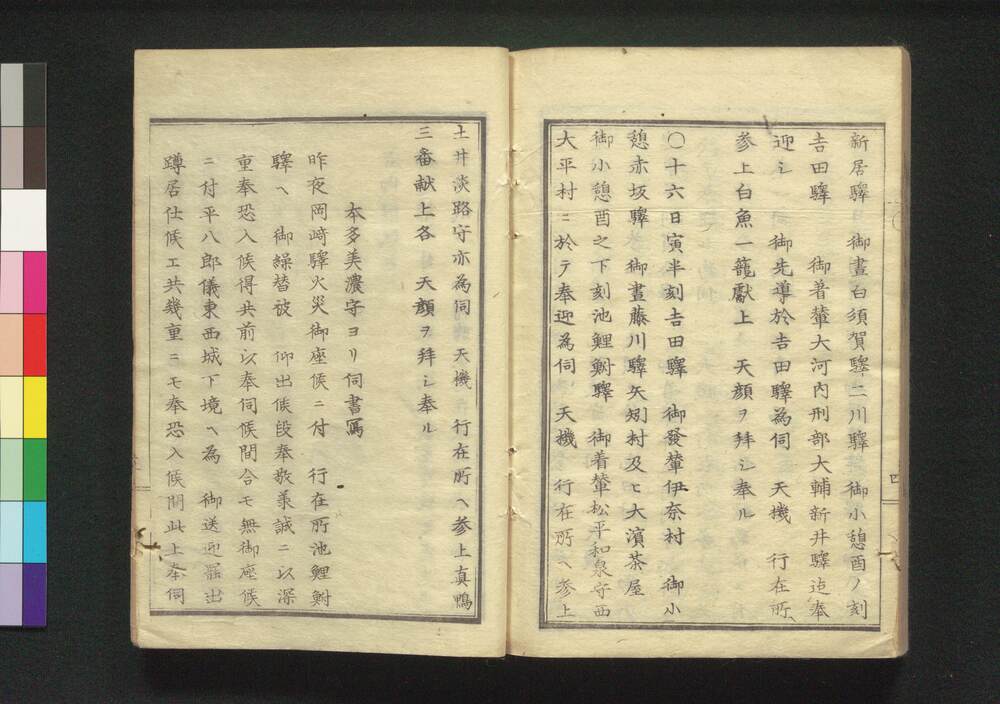 新居驛 御晝白須賀驛二川驛 御小憩酉ノ刻
吉田驛 御着輦大河内刑部大輔新井驛迠奉
迎シ 御先導於吉田驛為伺 天機 行在所ヘ
参上白魚一籠獻上 天顔ヲ拜シ奉ル
〇十六日寅半刻吉田驛 御發輦伊奈村 御小
憩赤坂驛 御晝藤川驛矢矧村及ヒ大濱茶屋
御小憩酉之下刻池鯉鮒驛 御着輦松平和泉守西
大平村ニ於テ奉迎為伺 天機 行在所ヘ参上
土井淡路守亦為伺 天機 行在所ヘ参上真鴨
三番献上各 天顔ヲ拜シ奉ル
本多美濃守ヨリ伺書寫
昨夜岡﨑驛火災御座候ニ付 行在所池鯉鮒
驛ヘ 御繰替被 仰出候段奉敬承誠ニ以深
重奉恐入候得共前以奉伺候間合モ無御座候
ニ付平八郎儀東西城下境ヘ為 御送迎罷出
蹲居仕候エ共幾重ニモ奉恐入候間此上奉伺
四